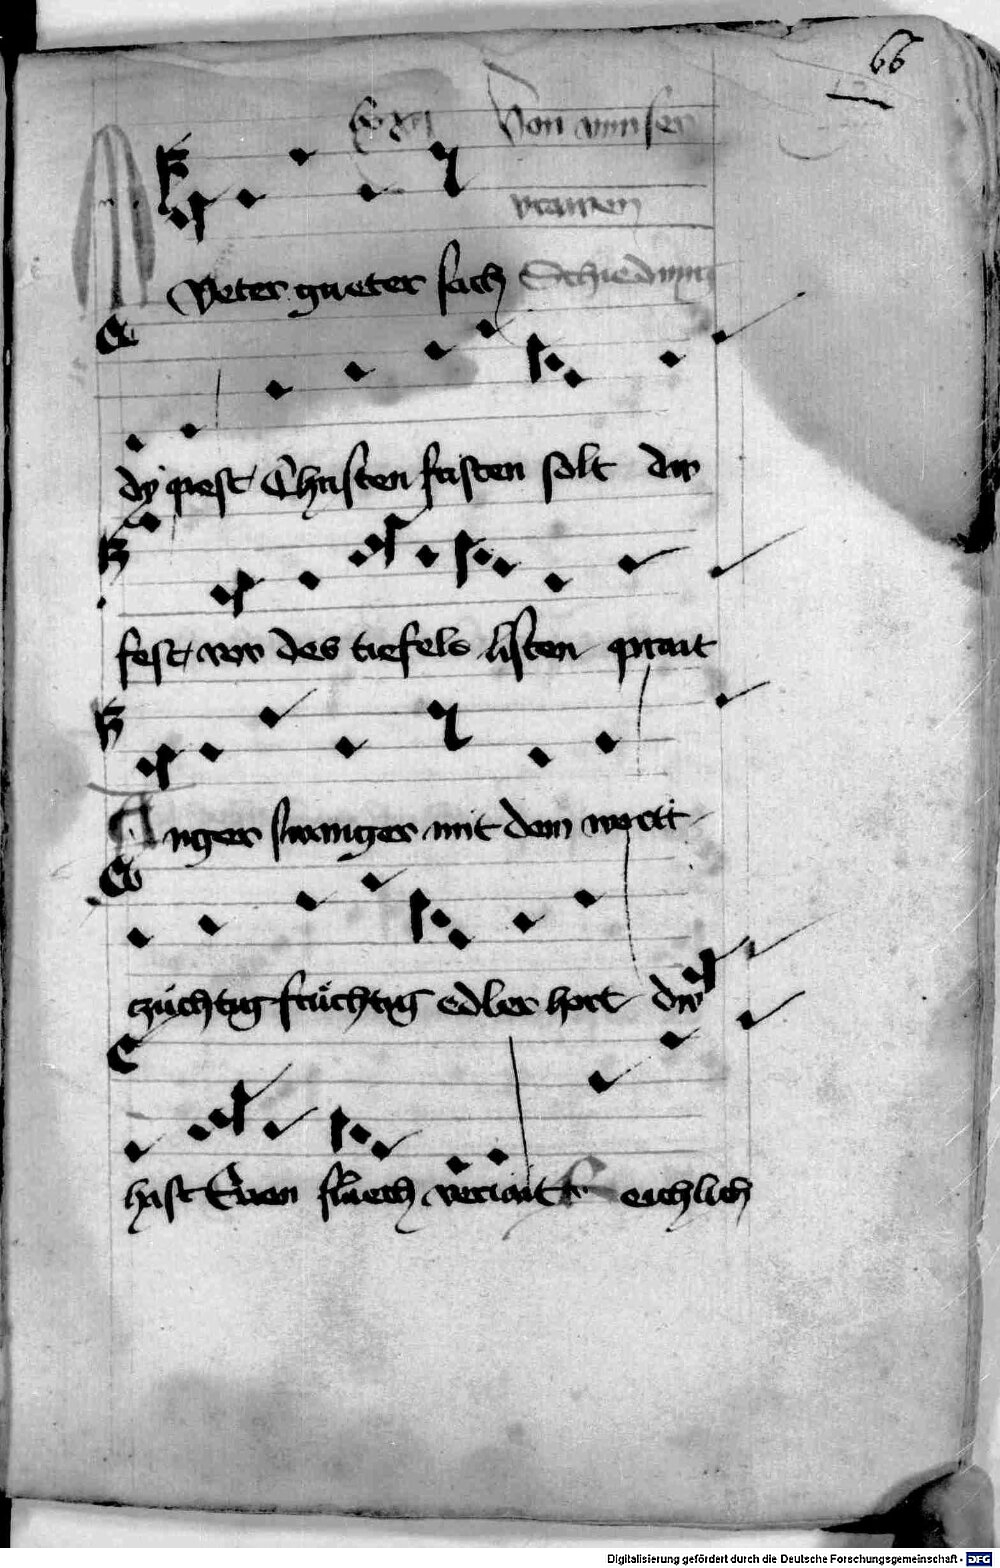 66
Von vnnser
vrawen
Mueter gueter sach Schiedung
dy pest Christen fristen solt dw
fest vor des tiefels listen prait
Anger swanger mit dem wortt
züchtig früchtig edler hort dw
hast Euen fluech veriait k eichlich
Digitalisierung gefördert durch die Deutsche Forschungsgemeinschaft - DFG